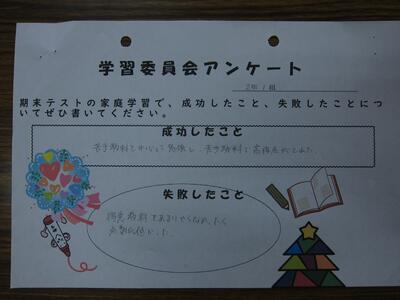 学習委員会アンケート
2年 1組
期末テストの家庭学習で、成功したこと、失敗したことにつ
いてぜひ書いてください。
成功したこと
苦手教科を中心に勉強し、苦手教科で高得点がとれた。
失敗したこと
得意教科をあまりやらなれ、たく
点数が低かった